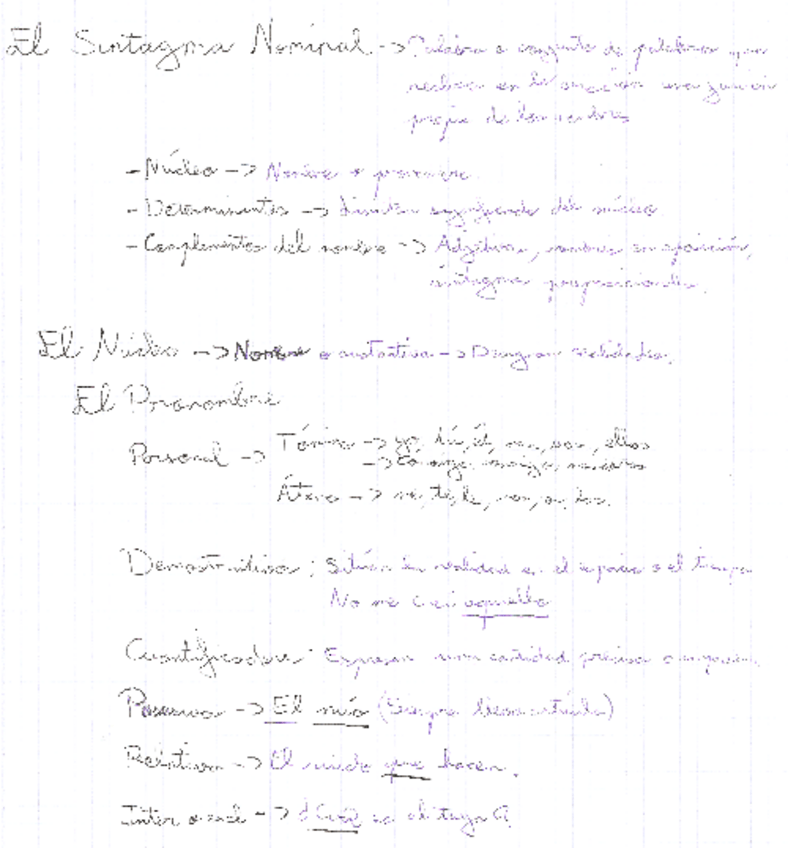 El Sintagma Nominal -> Palabra o conjunto de palabras que
realizan en la oración una función
propia de los nombres
- Núcleo -> Nombre o pronombre
- Determinantes -> Limitan significado del núcleo
- Complementos del nombre -> Adjetivos, nombre en aposición,
sintagma preposicional.
El Núcleo -> Nombre o sustantivo -> Designan realidades.
El Pronombre
Personal -> Tónico -> yo, tú, él, vos, ellos
-> conmigo, contigo,
Átono -> me, te, le, nos, os, los.
Demostrativos: Sitúan la realidad en el espacio o el tiempo
No me creí aquello
Cuantificadores: Expresan una cantidad precisa o imprecisa.
Posesivos -> El mío (Siempre lleva artículo)
Relativos -> El ruido que hacen.
Inter o excl -> ¿Cuál es el tuyo?